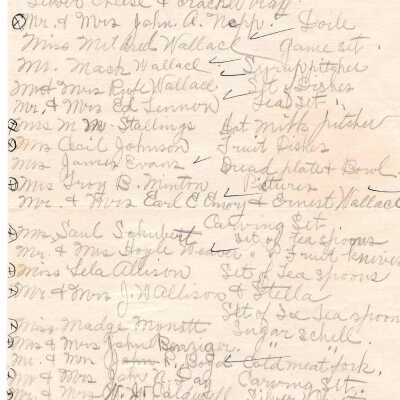 Silver Cheese & Cracker
Mr. & Mrs John A. Nepp. Doile
Miss Mildred Wallace Game Set.
Mr. Mack Wallace Syrup pitcher
Mr & Mrs Wallace Set of Dishes
Mr. & Mrs Ed Lennon Tea Set.
Mrs M M Stallings Hot Milk pitcher
Mrs Cecil Johnson Fruit Dishes
Mrs James Evans Bread plate & Bowl.
Mrs Troy B. Minton Pictures
Mr. & Mrs Earl C Emory & Ernest Wallace
Carving Set.
Mrs. Saul Schubert Set of Tea spoons
Mr. & Mrs Hoyle Weaver Fruit knives
Miss Lela Allison Set of Tea spoons
Mr & Mrs J. W Allison & Stella
Set of Ice Tea spoon
Miss Madge Monott Sugar Schell.
Mr & Mrs John
Mr. & Mrs John R. Cold meat fork.
Mr & Mrs John A. Carving Set
Mr & Mrs W. W. Caldwell Silver